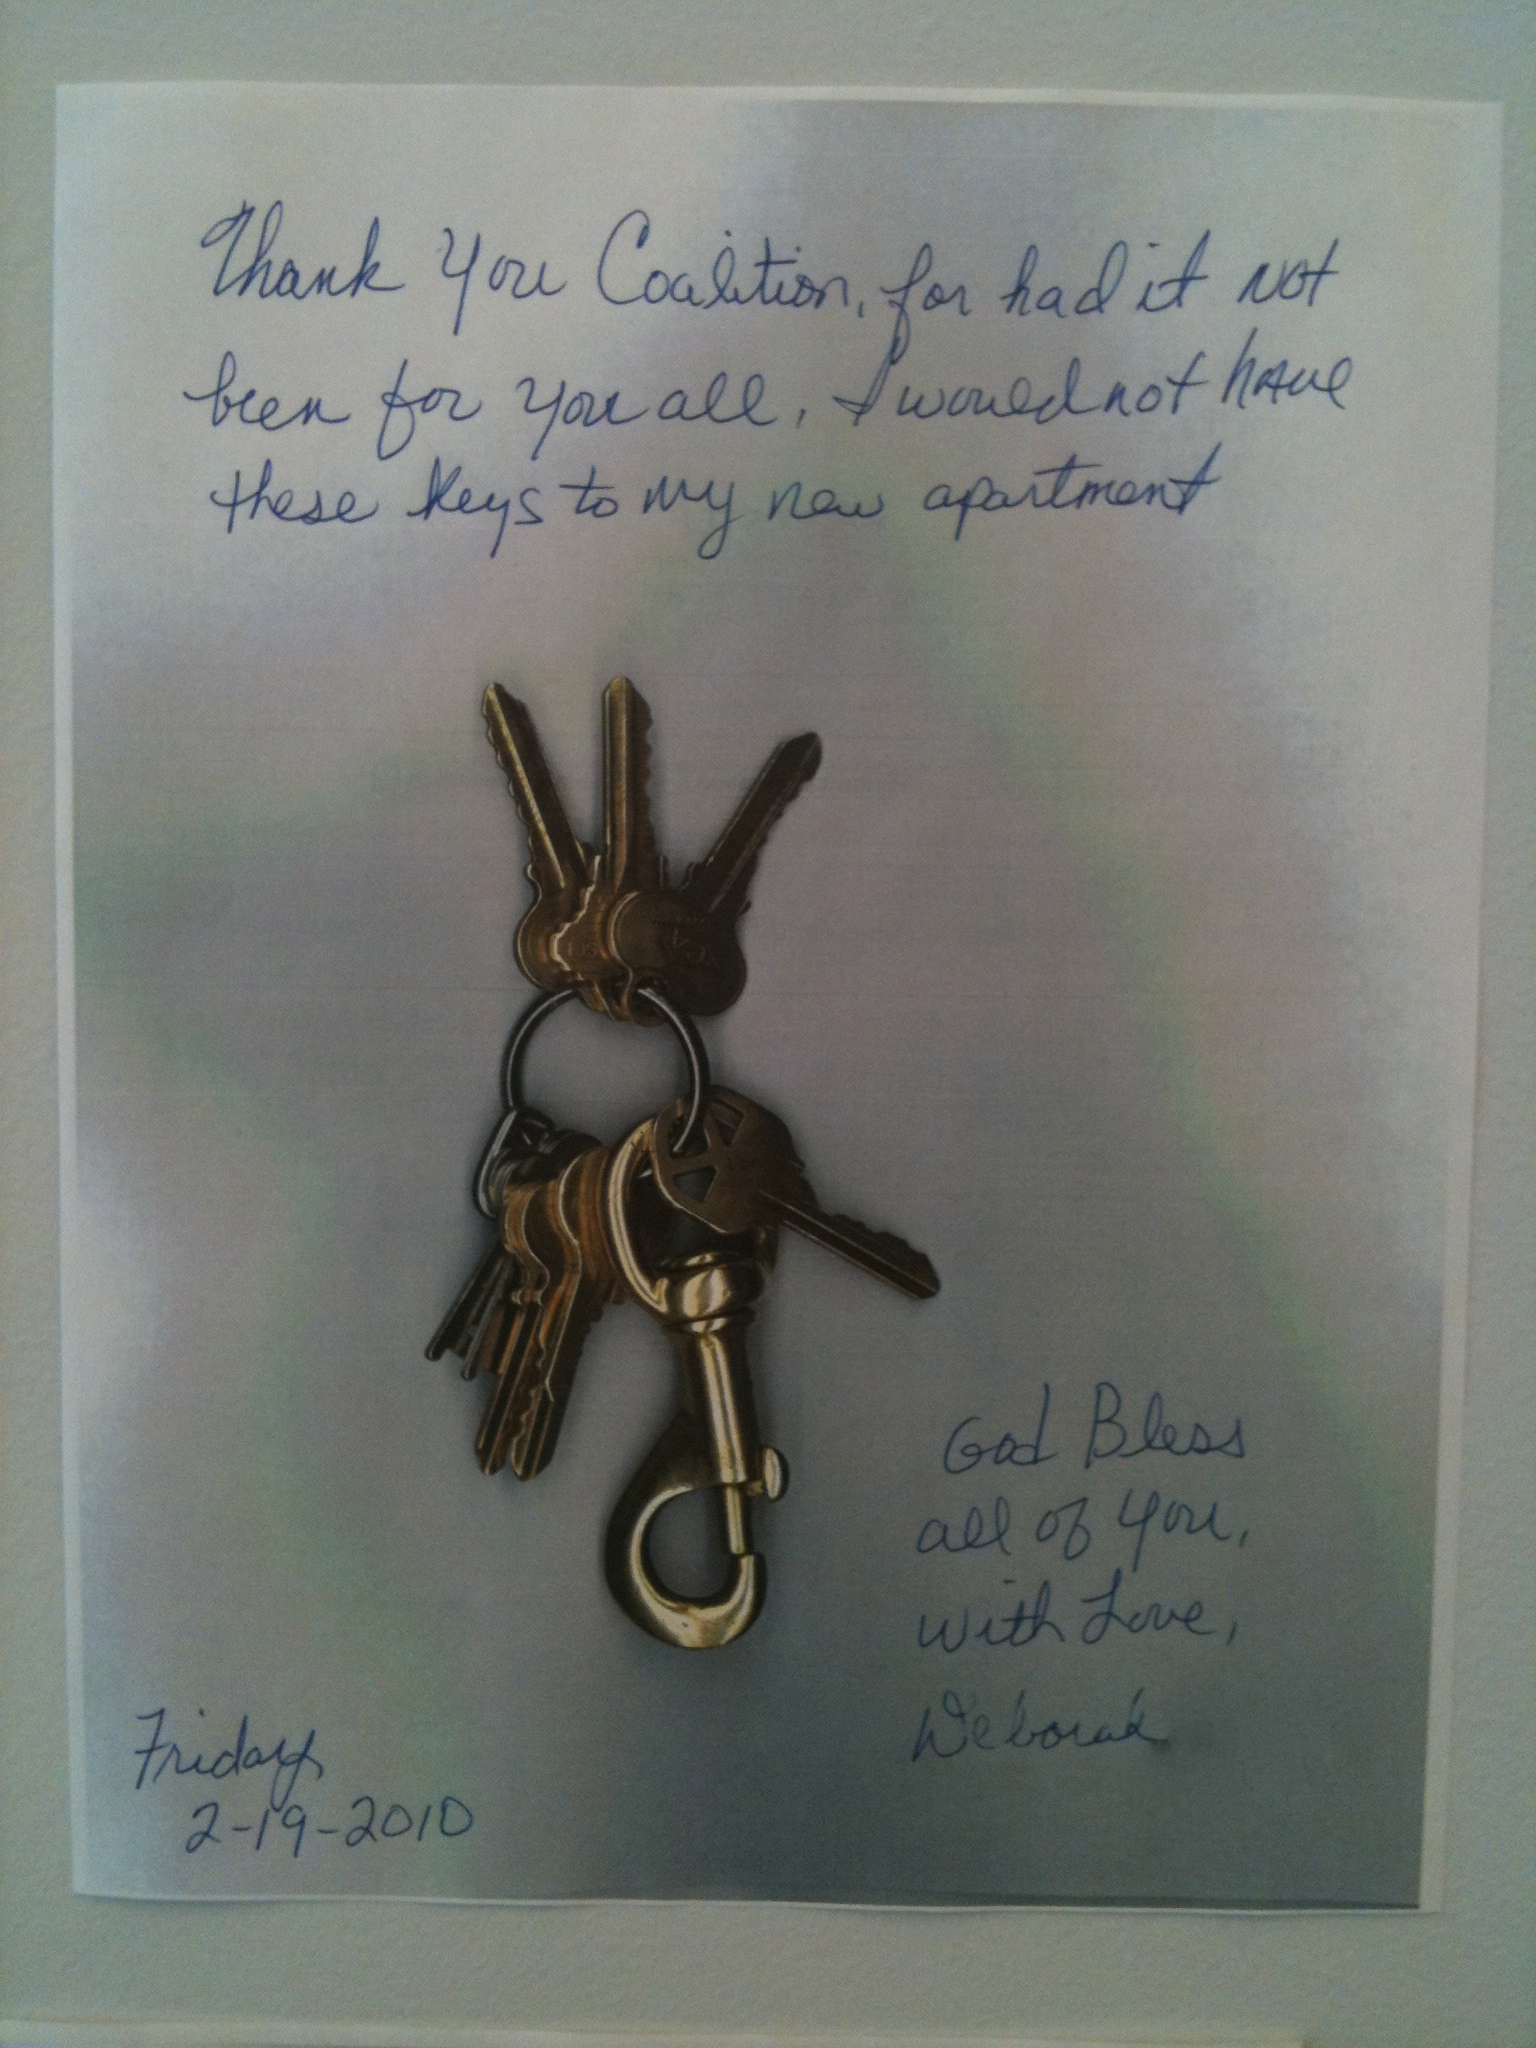 Thank You Coalition, for had it not
been for you all, I would not have
these keys to my new apartment
God Bless
all of You,
with Love,
Deborah
Friday
2-19-2010